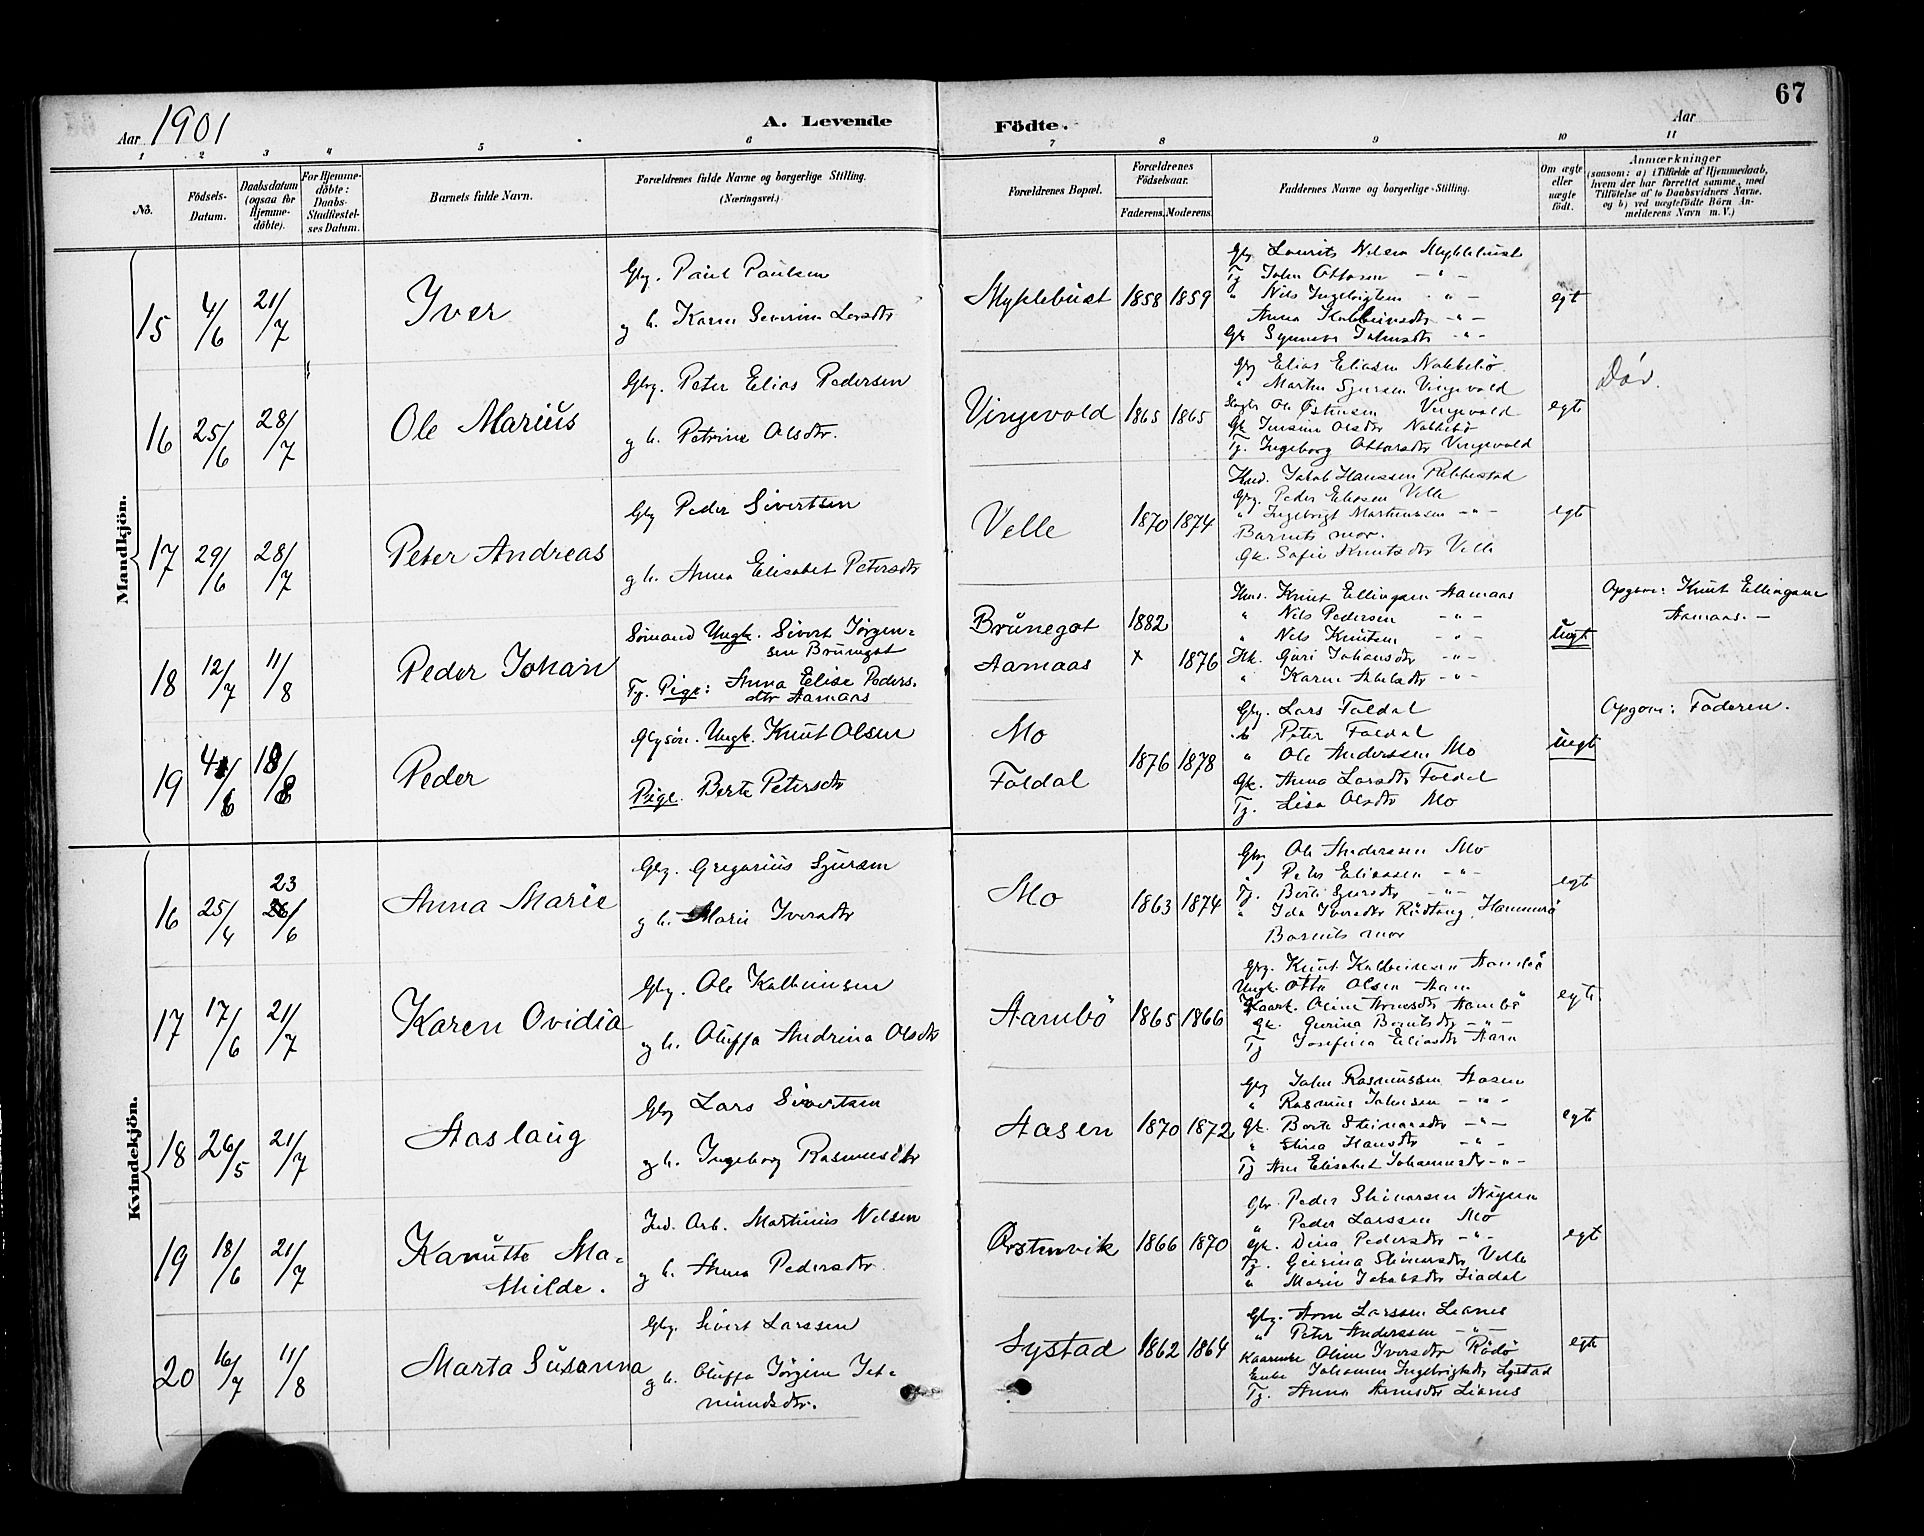 67
Aar 1901
A. Levende Födte.
Aar
1 2 3 4 5 6 7 8 9 10 11
No.
Födsels-Datum.
Daabsdatum (ogsaa for Hjemme-döbte).
For Hjemme-döbte: Daabs-Stadfæstel-ses Datum.
Barnets fulde Navn.
Forældrenes fulde Navne og borgerlige Stilling.
(Næringsvei.)
Forældrenes Bopæl.
Forældrenes Födselsaar.
Faderens. Moderens.
Faddernes Navne og borgerlige Stilling.
Om ægte eller uægte födt.
Anmærkninger
(saasom: a) i Tilfælde af Hjemmedaab, hvem der har forrettet samme, med Tilföielse af to Daabsvidners Navne, og b) ved uægtefödte Börn An-melderens Navn m. V.)
Mandkjön.
15 4/6 21/7 Iver
Gbr. Paul Paulsen
g h. Karen Severine Larsdtr
Myklebust 1858 1859
Gbr. Laurits Nilsen Myklebust
Tj John Ottosen - " -
" Nils Ingebrigtsen - " -
Anna Kolbeinsdtr - " -
Gk Synneve Johnsdtr - " -
egt
16 25/6 28/7 Ole Marius
Gbr. Peter Elias Pedersen
g h. Petrine Olsdtr.
Vingevold 1865 1865
Gbr Elias Eliasen Nakkebö
" Martin Sjursen Vingevold
Ole Østensen Vingevold
Gk Jensine Olsdtr Nakkebö
Tj. Ingeborg Ottarsdtr Vingevold
egt
Döv.
17 29/6 28/7 Peter Andreas
Gbr Peder Sivertsen
g h. Anna Elisabet Petersdtr
Velle 1870 1874
Jakob Hanssen
Gbr. Peder Eliasen Velle
" Ingebrigt Martinussen - " -
Barnets mor.
Gk. Sofie Knutsdtr Velle
egt
18 12/7 11/8 Peder Johan
Sömand Ungk. Sivert Jörgen-
sen Brunegot
Tj. Pige: Anna Elise Peders-
dtr Aamaas
Brunegot 1882
Aamaas x 1876
Knut Ellingsen Aamaas
" Nils Pedersen - " -
" Nils Knutsen - " -
Gk. Guri Johansdtr - " -
" Karen Abelsdtr - " -
uegt.
Opgave: Knut Ellingsen
Aamaas. -
19 4/6 18/8 Peder
Gbrsön. Ungk. Knut Olsen
Pige. Berte Petersdtr
Mo
Foldal 1876 1878
Gbr. Lars Foldal
" Peter Foldal
" Ole Anderssen Mo
Gk. Anna Larsdtr Foldal
Tj. Lisa Olsdtr Mo
uegt
Opgave: Faderen.
Kvindekjön.
16 25/4 23/6 Anna Marie
Gbr. Gregorius Sjursen
g h. Marie Iversdtr
Mo 1863 1874
Gbr Ole Anderssen Mo
" Peter Eliassen - " -
Tj. Berte Sjursdtr - " -
" Ida Iversdtr
Barnets mor
egt
17 17/6 21/7 Karen Ovidia
Gbr. Ole Kolbeinsen
g h. Oluffa Andrina Olsdtr
Aambö 1865 1866
Gbr. Knut Kolbeinsen Aambö
Ungk. Otto Olsen Aam
Kaark. Oline Arnesdtr Aambö
Gk. Gurina Berntsdtr - " -
Tj Josefine Eliasdtr Aam
egt.
18 26/5 21/7 Aaslaug
Gbr Lars Sivertsen
g h. Ingeborg Rasmusdtr
Aasen 1870 1872
Gbr John Rasmussen Aasen
" Rasmus Johnsen - " -
Gk. Berte Steinarsdtr - " -
" Stina Hansdtr - " -
Tj Ane Elisabet Johannesdtr - " -
egt
19 18/6 21/7 Kanutte Ma-
thilde.
Ind. Arb. Martinus Nilsen
g h. Anna Pedersdtr.
Ørstenvik 1866 1870
Gbr. Peder Steinarsen
" Peder Larssen Mo
Gk. Dina Pedersdtr - " -
Tj. Gurina Steinarsdtr Velle
" Marie Jakobsdtr Liadal
egt
20 16/7 11/8 Marta Susanna
Gbr. Sivert Larssen
g h. Oluffa Jörgine Jet-
mundsdtr.
Systad 1862 1864
Gbr. Arne Larssen Lianes
" Peter Anderssen - " -
Kaarenke Oline Iversdtr Rödö
Enke Johanna Ingebrigtsdtr Systad
Tj. Anna Arnesdtr Lianes
egt